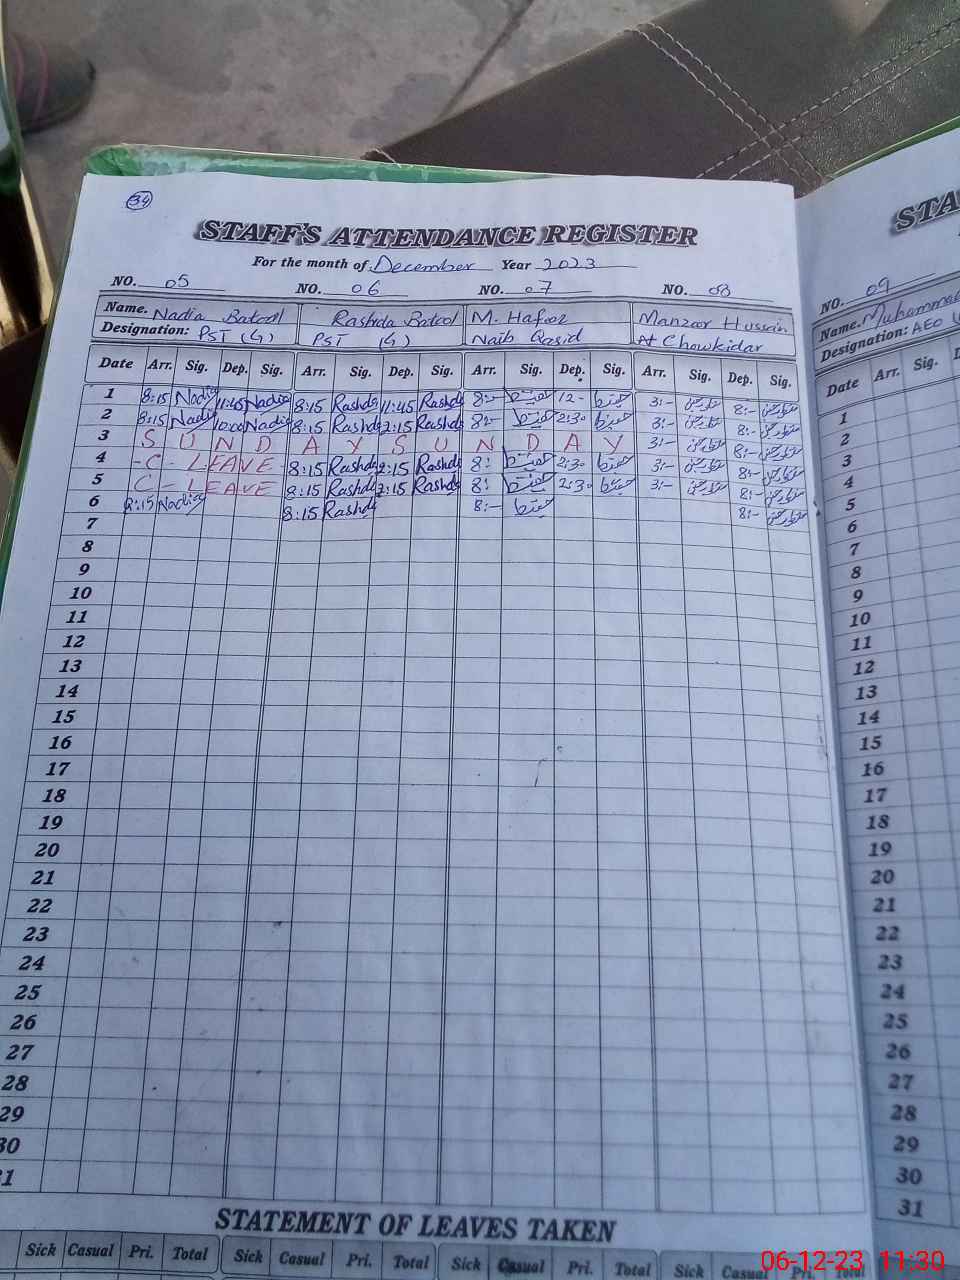 34
STAFF'S ATTENDANCE REGISTER
For the month of December Year 2023
NO. 05 NO. 06 NO. 07 NO. 08
Name. Nadia Batool Rashda Batool M. Hafeez Manzoor Hussain
Designation: PST (G) PST (G) Naib Qasid Chowkidar
Date Arr. Sig. Dep. Sig. Arr. Sig. Dep. Sig. Arr. Sig. Dep. Sig. Arr. Sig. Dep. Sig.
1 8:15 Nadia 11:45 Nadia 8:15 Rashda 11:45 Rashda 8:- حفیظ 12- حفیظ 3:- منظور حسین 8:- منظور حسین
2 8:15 Nadia 10:00 Nadia 8:15 Rashda 2:15 Rashda 8:- حفیظ 2:30 حفیظ 3:- منظور حسین 8:- منظور حسین
3 S U N D A Y S U N D A Y 3:- منظور حسین 8:- منظور حسین
4 -C- LEAVE 8:15 Rashda 2:15 Rashda 8: حفیظ 2:30 حفیظ 3:- منظور حسین 8:- منظور حسین
5 C- LEAVE 8:15 Rashda 2:15 Rashda 8: حفیظ 2:30 حفیظ 3:- منظور حسین 8:- منظور حسین
6 8:15 Nadia 8:15 Rashda 8:- حفیظ 8:- منظور حسین
7
8
9
10
11
12
13
14
15
16
17
18
19
20
21
22
23
24
25
26
27
28
29
30
31
STATEMENT OF LEAVES TAKEN
Sick Casual Pri. Total Sick Casual Pri. Total Sick Casual Pri. Total Sick Casual Pri. Total
STA
NO. 09
Name. Muhammad
Designation: AEO
Date Arr. Sig.
1
2
3
4
5
6
7
8
9
10
11
12
13
14
15
16
17
18
19
20
21
22
23
24
25
26
27
28
29
30
31
06-12-23 11:30